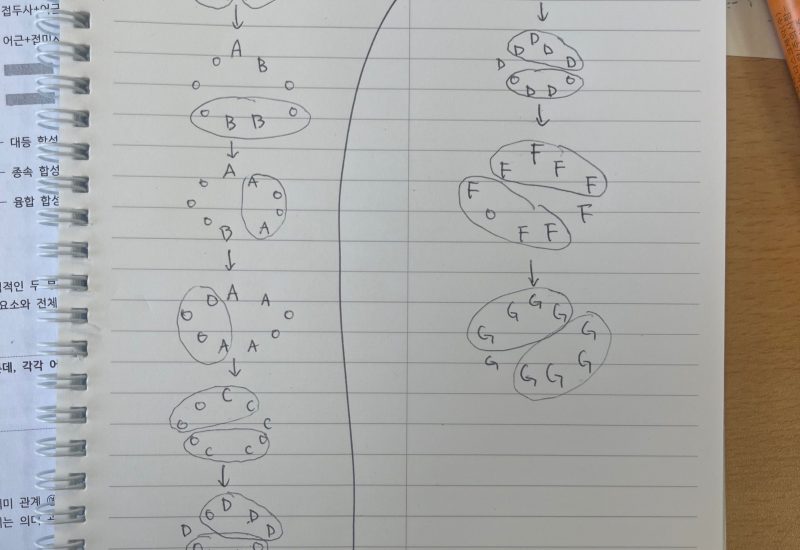 접두사+어근
어근+접미사
대등 합성
종속 합성
융합 합성
적인 두
요소와 전체
데, 각각 어
의미 관계
는 의미
A
O B
O O
O B B O
A
O A
O O
O O
B A
O A A
O O
O O
A A
O C C
O C
O C C O
O D D
D D
D D D D
D
O D D O
F F F F
F F
O F F
G G G G
G G
G G G